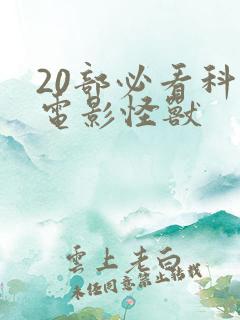 20部必看科
電影怪獸
雲上老白
未经同意禁止转载